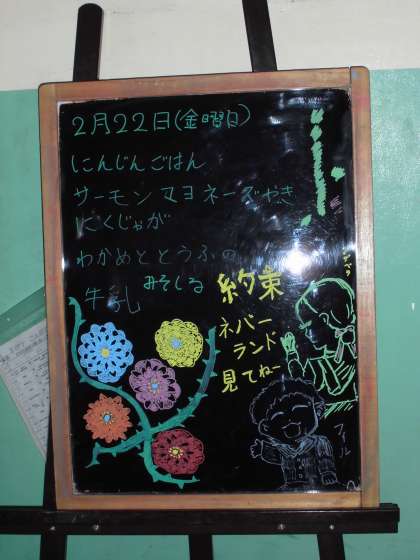 2月22日(金曜日)
にんじんごはん
サーモンマヨネーズやき
にくじゃが
わかめととうふの
みそしる
牛乳
約束
ネバー
ランド
見てねー
フィル